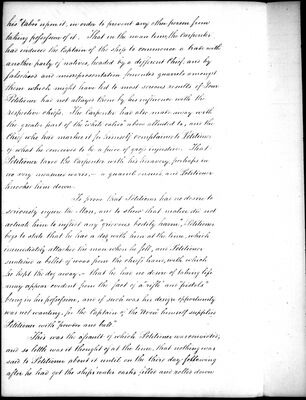 his "Tabu" upon it, in order to prevent any other person from
taking possession of it. That in the mean time, the Carpenter
had induced the Captain of the ship to commence a trade with
another party of natives, headed by a different Chief, and by
falsehood and misrepresentation fomented quarrels amongst
them which might have led to most serious results if Your
Petitioner had not allayed them by his influence with the
respective chiefs. The Carpenter had also made away with
the greater part of the "whole cable" above alluded to, and the
Chief who had marked it for himself complained to Petitioner
of what he conceived to be a piece of gross injustice. That
Petitioner taxed the Carpenter with his knavery, perhaps in
no very measured words, — a quarrel ensued, and Petitioner
knocked him down.
To prove that Petitioner had no desire to
seriously injure the Man, and to show that malice did not
actuate him to inflict any grievous bodily harm, Petitioner
begs to state that he had a dog with him at the time, which
immediately attacked the man when he fell, and Petitioner
snatched a billet of wood from the chief's hand, with which
he kept the dog away; — that he had no desire of taking life
may appear evident from the fact of a "rifle" and "pistols"
being in his possession, and if such was his design opportunity
was not wanting, for the Captain of the "Woon" himself supplied
Petitioner with "powder and ball"
This was the assault of which Petitioner was convicted,
and so little was it thought of at the time, that nothing was
said to Petitioner about it until on the third day following
after he had got the ship's water casks filled and rolled down